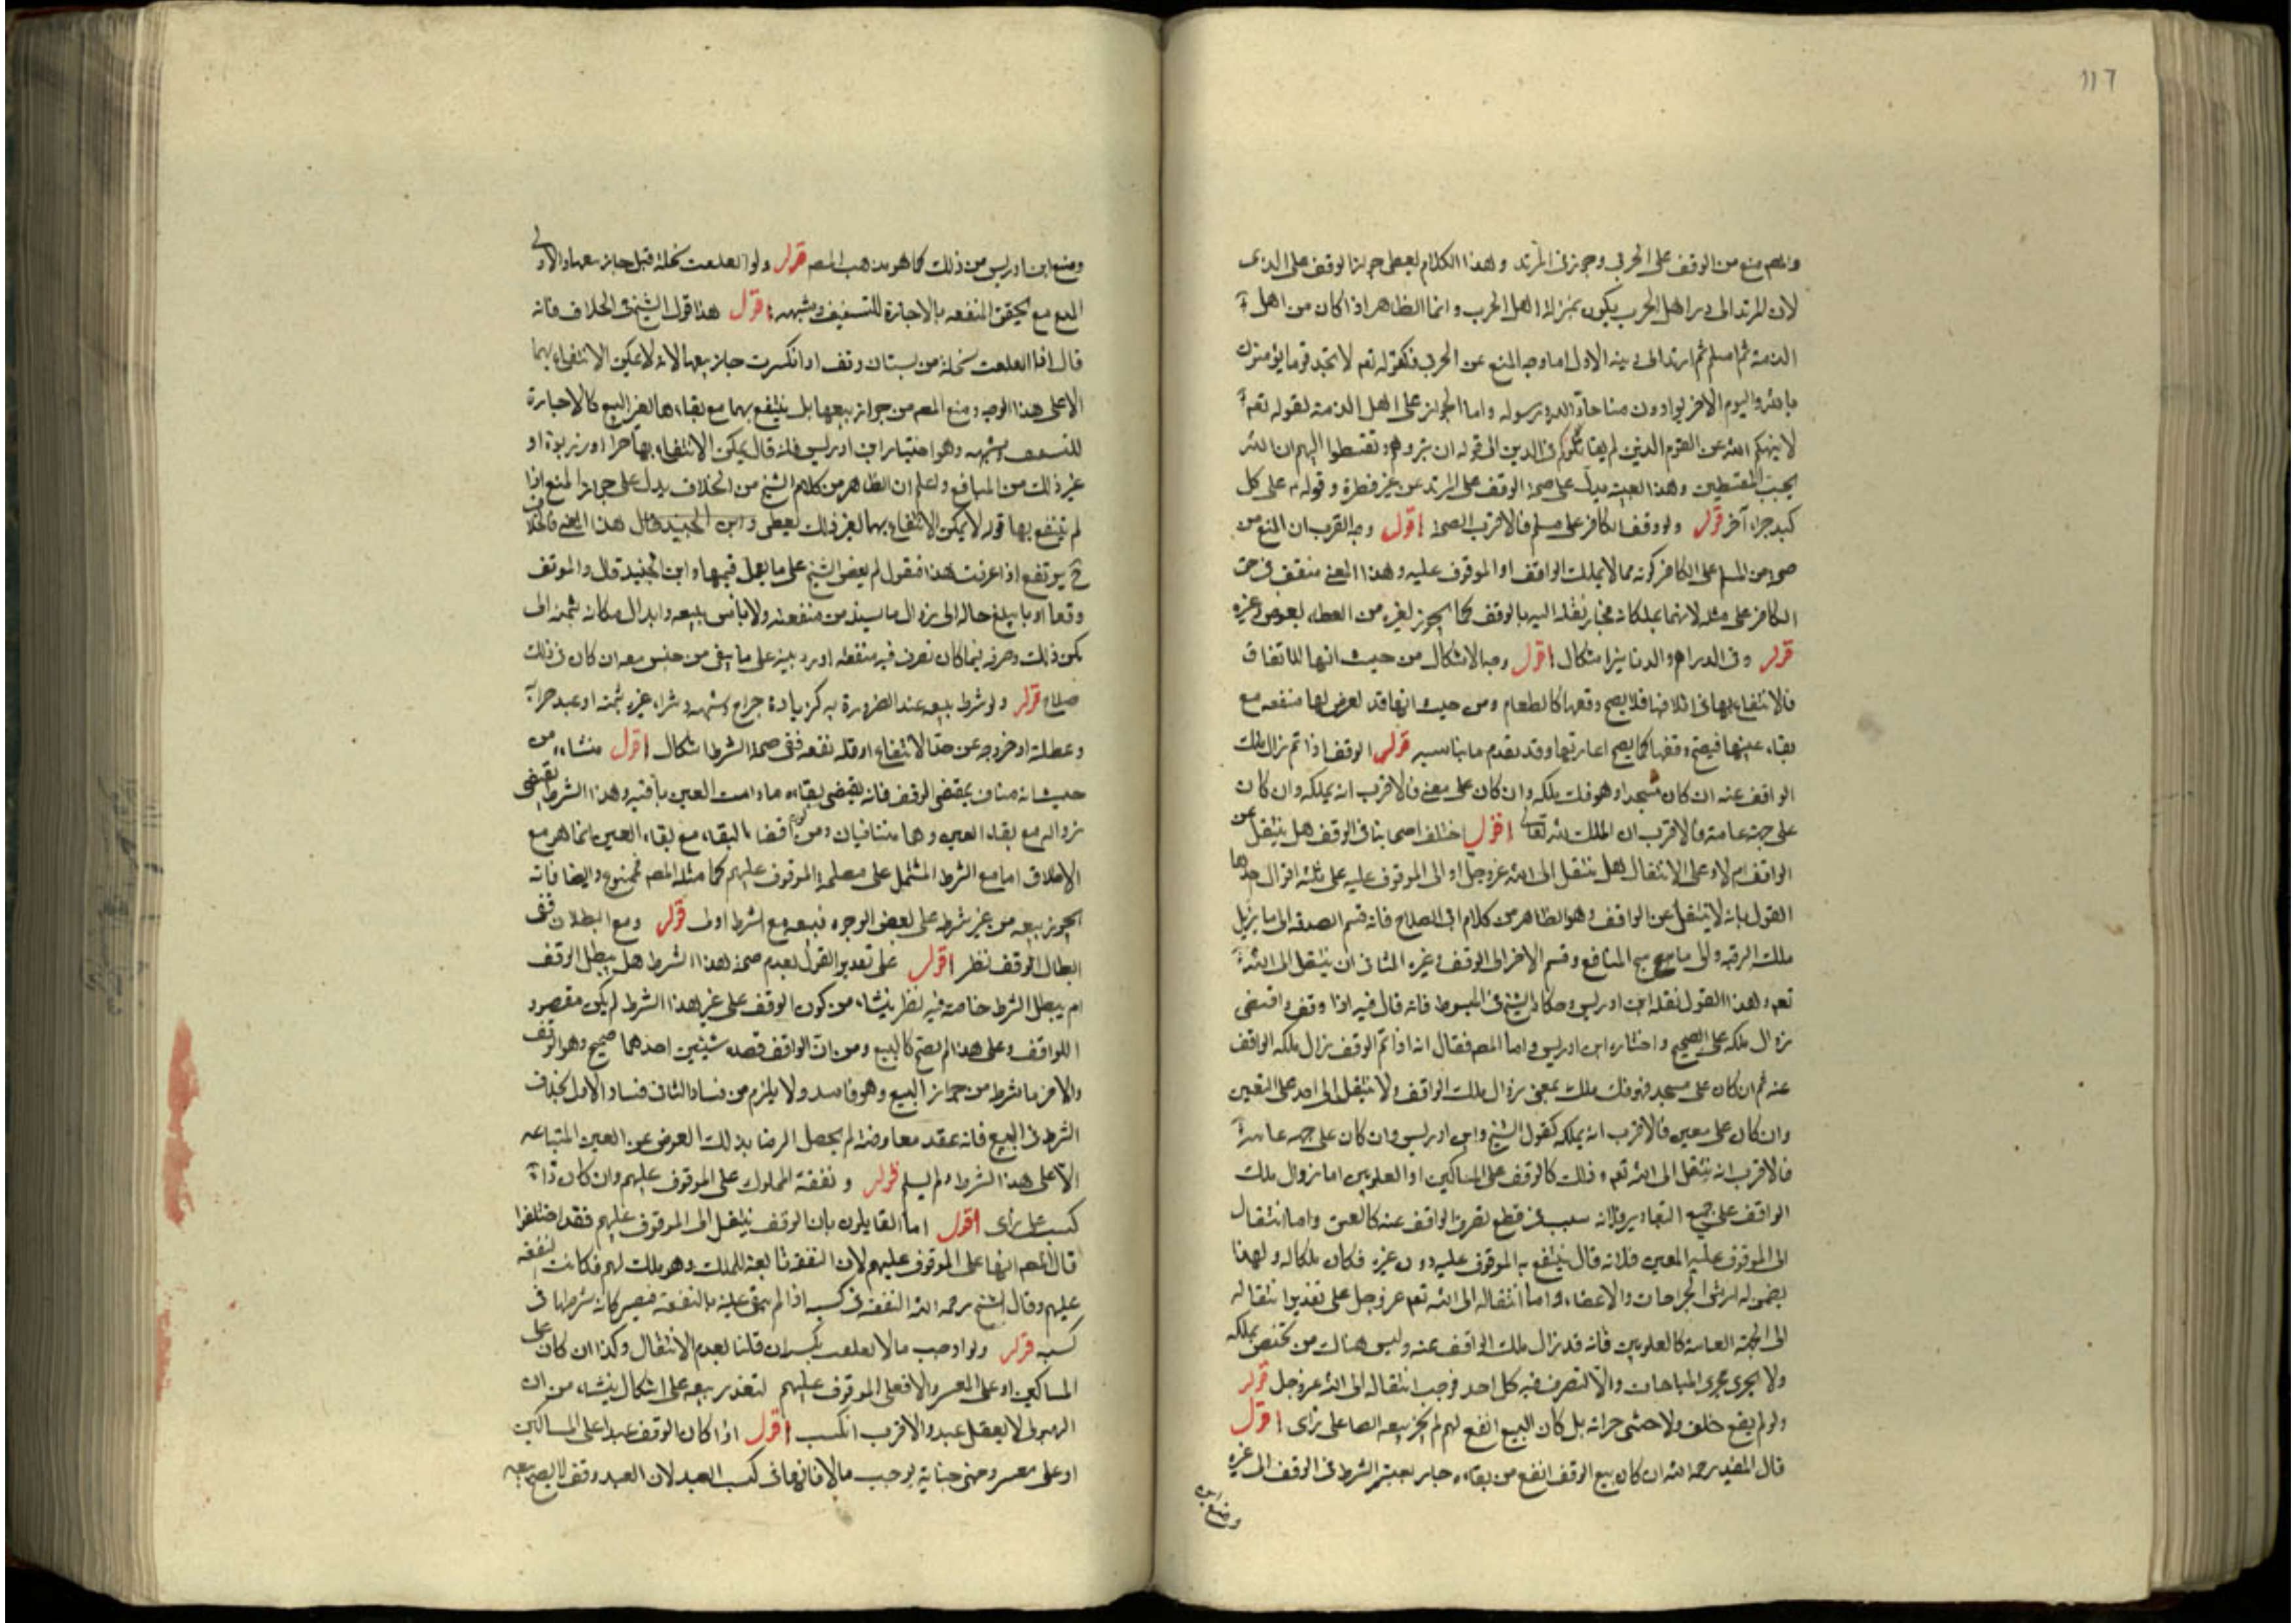 ١١٦
والمص منع من الوقف على الحربي وجوز في المرتد وهذا الكلام يعطي جواز الوقف على الذي
لان المرتد الى دار اهل الحرب يكون بمنزلة اهل الحرب وانما الظاهر اذا كان من اهل
الذمة ثم اسلم ثم ارتد الى دينه الاول اما وجه المنع عن الحربي فكقوله تعم لا تجد قوما يؤمنون
بالله واليوم الاخر يوادون من حاد الله ورسوله واما الجواز على اهل الذمة لقوله تعم
لا ينهكم الله عن القوم الذين لم يقاتلوكم في الدين الى قوله ان تبروهم وتقسطوا اليهم ان الله
يحب المقسطين وهذا العينه يدل على صحة الوقف على المرتد عن غير فطرة وقوله ع على كل
كبد حراء آخر قوله ولو وقف الكافر على مسلم فالاقرب الصحة اقول وجه القرب ان المنع من
صحته من المسلم على الكافر كونه مما لا يملك الواقف او الموقوف عليه وهذا المعنى منتف في حق
الكافر على مثله لانهما يملكانه فجاز نقله اليه بالوقف كما يجوز لغيره من العطاء بعوض وغيره
قوله وفي الدراهم والدنانير اشكال اقول وجه الاشكال من حيث انها للاتفاق
فالانتفاع بها في اتلافها فلا يصح وقفها كالطعام ومن حيث انها قد يعرض لها منفعه مع
بقاء عينها فيصح وقفها كما يصح اعارتها وقد تقدم ما يناسبه قوله الوقف اذا تم زال ملك
الواقف عنه ان كان مسجدا وهو فك ملكه وان كان على معين فالاقرب انه يملكه وان كان
على جهة عامة فالاقرب ان الملك لله تعالى اقول اختلف اصحابنا في الوقف هل ينتقل عن
الواقف ام لا وعلى الانتقال هل ينتقل الى الله عز وجل او الى الموقوف عليه على ثلثة اقوال احدها
القول بانه لا ينتقل عن الواقف وهو الظاهر من كلام ابي الصلاح فانه قسم الصدقه الى ما يزيل
ملك الرقبه والى ما يبيح المنافع وقسم الاخر الى الوقف وغيره الثاني ان ينتقل الى الله
تعم وهذا القول نقله ابن ادريس وحكاه الشيخ في المبسوط فانه قال فيه اذا وقف واقتضى
زوال ملكه على الصحيح واختاره ابن ادريس واما المص فقال انه اذا تم الوقف زال ملكه الواقف
عنه ثم ان كان على مسجد فهو فك ملك بمعنى زوال ملك الواقف ولا ينتقل الى احد على التعيين
وان كان على معين فالاقرب انه يملكه كقول الشيخ وابن ادريس وان كان على جهه عامة
فالاقرب انه ينتقل الى الله تعم وذلك كالوقف على المساكين او العلويين اما زوال ملك
الواقف على جميع التقادير فلانه سبب في قطع تصرف الواقف عنه كالعتق واما انتقال
الى الموقوف عليه المعين فلانه قال ينتفع به الموقوف عليه دون غيره فكان ملكا له ولهذا
يضمن له ارش الجراحات والاعضاء واما انتقاله الى الله تعم عز وجل على تقدير انتقاله
الى الجهة العامة كالعلويين فانه قد زال ملك الواقف عنه وليس هناك من يختص بملكه
ولا يجري مجرى المباحات والا لتصرف فيه كل احد فوجب انتقاله الى الله عز وجل قوله
ولو لم يقع خلف ولا خشي خرابه بل كان البيع انفع لهم لم يجز بيعه ايضا على راى اقول
قال المفيد رحمه الله ان كان بيع الوقف انفع من بقاءه جاز بعينه الشرط في الوقف الى غيره
ومنع ابن
ومنع ابن ادريس من ذلك كما هو مذهب المص قوله ولو انقلعت نخلة قبل جاز بيعها والاولى
المنع مع تحقق المنفعه بالاجارة للتسقيف وشبهه اقول هذا قول الشيخ في الخلاف فانه
قال اذا انقلعت نخلة من بستان وقف او انكسرت جاز بيعها لانه لا يمكن الانتفاع بها
الا على هذا الوجه ومنع المص من جواز بيعها بل ينتفع بها مع بقاءها لغير البيع كالاجارة
للتسقيف وشبهه وهو اختيار ابن ادريس فانه قال يمكن الانتفاع بها جسرا او زرنوقا او
غير ذلك من المنافع واعلم ان الظاهر من كلام الشيخ من الخلاف يدل على جواز المنع اذا
لم ينتفع بها قوله لا يمكن الانتفاع بها لغير ذلك يعطي وابن الجنيد قال هذا المعنى فالخلاف
ح يرتفع اذا عرفت هذا فنقول لم يعض الشيخ على ما يعمل قيمها وابن الجنيد قال والموقف
وقفا او ما يبلغ حاله الى زوال ما سبله من منفعته ولا باس ببيعه وابدال مكانه بثمنه ان
امكن ذلك وصرفه فيما كان تصرف فيه منفعته او رد ثمنه على ما بقي من جنس معه ان كان في ذلك
صلاح قوله ولو شرط بيعه عند الضرورة به كزيادة خراج وشبهه وشراء غيره بثمنه او عند خرابه
وعطلته او خروجه عن حد الانتفاع او قلة نفعه ففي صحة الشرط اشكال اقول منشاءه من
حيث انه مناف بمقتضى الوقف فانه يقتضى بقاءه ما دامت العين باقيه وهذا الشرط يقتضي
زواله مع بقاء العين وهما متنافيان ومن كون اقتضاء البقاء مع بقاء العين انما هو مع
الاطلاق اما مع الشرط المشتمل على مصلحة الموقوف عليهم كما مثله المص فممنوع وايضا فانه
يجوز بيعه من غير شرط على بعض الوجوه فبيعه مع الشرط اولى قوله ومع البطلان ففي
ابطال الوقف نظر اقول على تقدير القول بعدم صحة هذا الشرط هل يبطل الوقف
ام يبطل الشرط خاصة فيه نظر ينشاء من كون الوقف على غير هذا الشرط لم يكن مقصود
اللواقف وعلى هذا لم يصح كالبيع ومن ان الواقف قصد شيئين احدهما صحيح وهو الوقف
والاخر ما شرط من جواز البيع وهو فاسد ولا يلزم من فساد الثاني فساد الاول بخلاف
الشرط في البيع فانه عقد معاوضة لم يحصل الرضا بذلك العوض عن العين المتباعه
الا على هذا الشرط ولم يسلم قوله ونفقة المملوك على الموقوف عليهم وان كان ذا
كسب على راى اقول اما القايلون بان الوقف ينتقل الى الموقوف عليهم فقد اختلفوا
قال المص انها على الموقوف عليهم لان النفقة تابعة للملك وهو ملك لهم فكانت نفقته
عليهم وقال الشيخ رحمه الله النفقة في كسبه اذا لم يبق عليه بالنفقة فيصير كانه شرطها في
كسبه قوله ولو اوجب مالا تعلقت بكسبه ان قلنا بعدم الانتقال وكذا ان كان على
المساكين او على المعسر والا فعلى الموقوف عليهم لتعذر بيعه على اشكال ينشاء من ان
المولى لا يعقل عبدا والاقرب الكسب اقول اذا كان الوقف عبدا على المساكين
او على معسر وجنى جناية يوجب مالا فانها في كسب العبد لان العبد وقف لا يصح بيعه